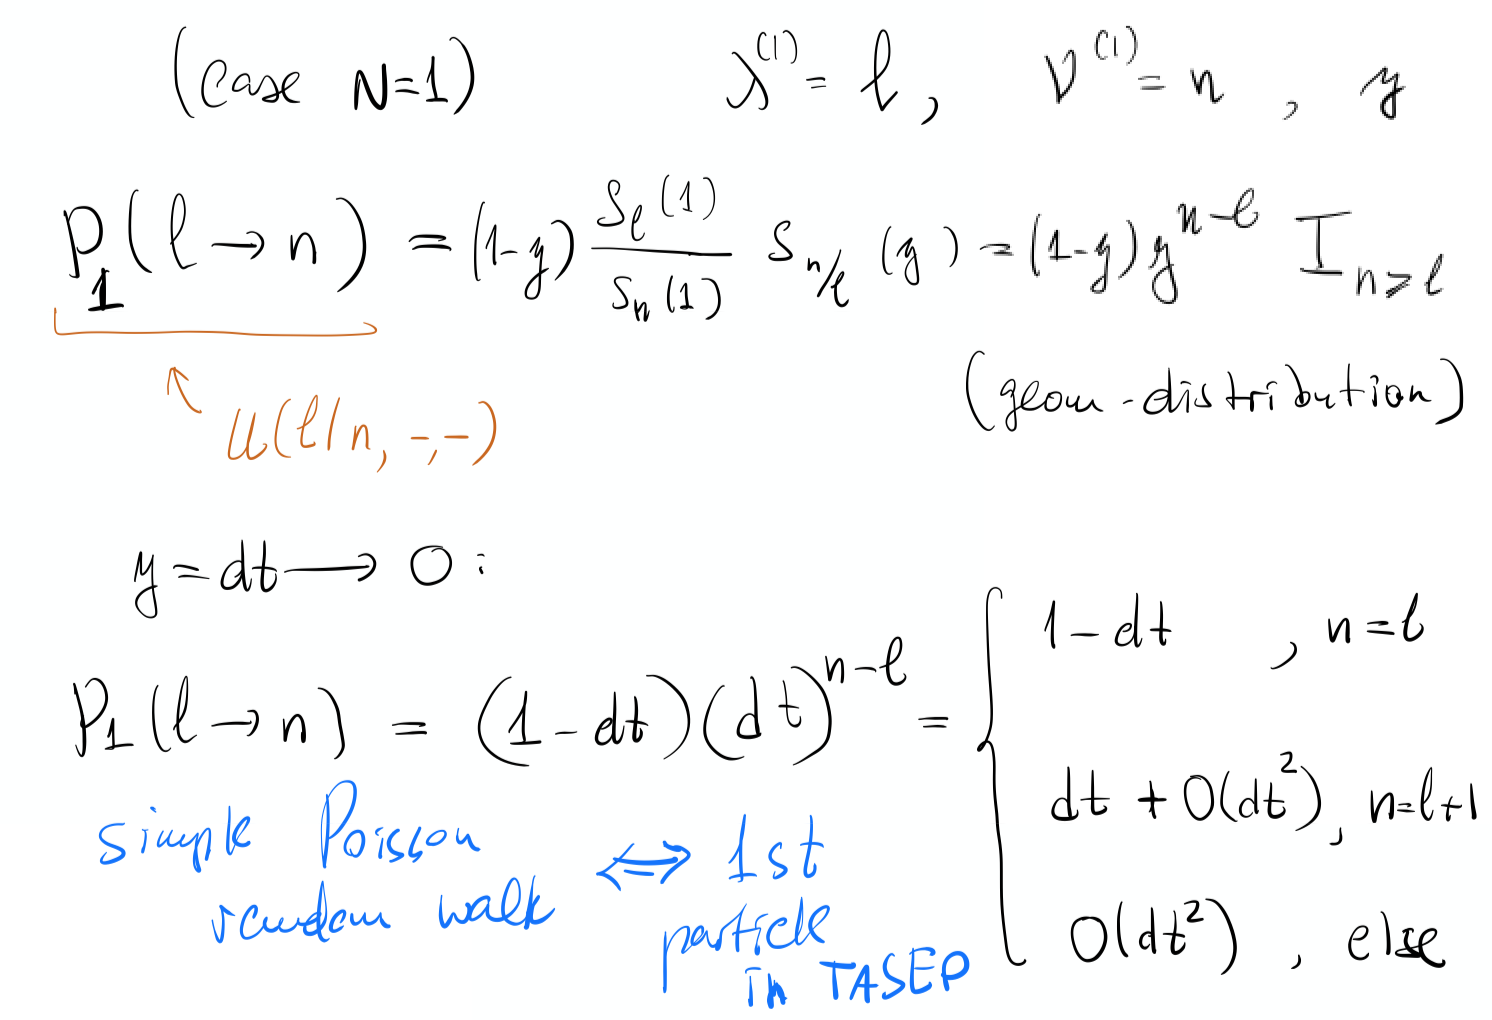 (case N=1) λ^(1) = ℓ, ν^(1) = n, y
P_1(ℓ → n) = (1-y) S_ℓ(1)/S_n(1) S_{n/ℓ}(y) = (1-y) y^{n-ℓ} I_{n≥ℓ}
(geom-distribution)
U(ℓ|n, -,-)
y = dt → 0 :
P_1(ℓ → n) = (1-dt)(dt)^{n-ℓ} = {
1-dt , n=ℓ
dt + O(dt^2), n=ℓ+1
O(dt^2) , else
simple Poisson
random walk ⟺ 1st
particle
in TASEP